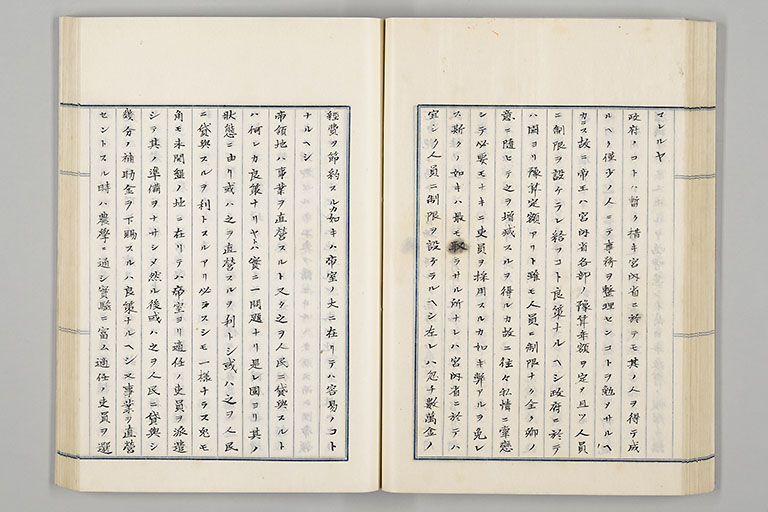 マレルヤ
政府ノコトハ暫ク措キ宮内省ニ於テモ其ノ人ヲ得テ成
ルヘク僅少ノ人ニテ事務ヲ整理センコトヲ勉メサルヘ
カラス故ニ帝王ハ宮内省各部ノ豫算年額ヲ定メ且ツ人員
ニ制限ヲ設ケラレ給フコト良策ナルヘシ政府ニ於テ
ハ固ヨリ豫算定額アリト雖モ人員ニ制限ナク全ク卿ノ
意ニ隨ヒテ之ヲ増減スルヲ得ルカ故ニ往々私情ニ牽戀
シテ必要モナキニ吏員ヲ採用スルカ如キ弊アルヲ免レ
ス斯クノ如キハ最モ取ラサル所ナレハ宮内省ニ於テハ
宜シク人員ニ制限ヲ設ケラルヘシ左レハ忽チ數萬金ノ
經費ヲ節約スルカ如キハ帝室ノ大ニ在リテハ容易ノコト
ナルヘシ
帝領地ハ事業ヲ直營スルト又ク之ヲ人民ニ貸與スルト
ハ何レカ良策ナリヤトハ實ニ一問題ナリ是レ固ヨリ其ノ
状態ニ由リ或ハ之ヲ直營スルヲ利トシ或ハ之ヲ人民
ニ貸與スルヲ利トスルアリ必ラスシモ一樣ナラス兎モ
角モ未開墾ノ地ニ在リテハ帝室ヨリ適任ノ吏員ヲ派遣
シテ其ノ準備ヲナサシメ然ル後或ハ之ヲ人民ニ貸與シ
幾分ノ補助金ヲ下賜スルハ良策ナルヘシ又事業ヲ直營
セントスル時ハ農學ニ通シ實驗ニ富ム適任ノ吏員ヲ選